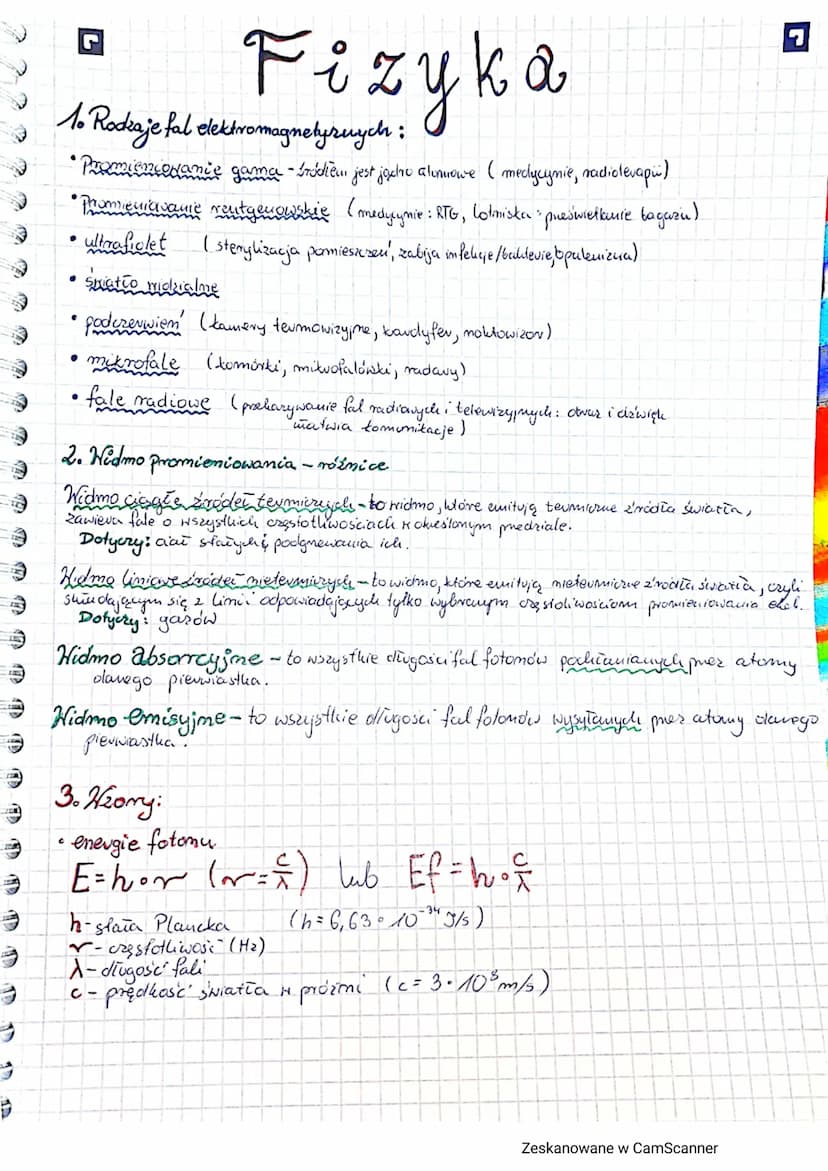 Fizyka
1. Rodzaje fal elektromagnetycznych:
• Promieniowanie gama - źródłem jest jądro atomowe (medycynie, radioterapii)
• Promieniowanie rentgenowskie (medycynie: RTG, lotniska: prześwietlanie bagażu)
• ultrafiolet (sterylizacja pomieszczeń, zabija infekcje/bakterie, opalenizna)
• światło widzialne
• podczerwień (kamery termowizyjne, kaloryfer, noktowizor)
• mikrofale (komórki, mikrofalówki, radary)
• fale radiowe (przekazywanie fal radiowych i telewizyjnych: obraz i dźwięk
ułatwia komunikacje)
2. Widmo promieniowania - różnice
Widmo ciągłe źródeł termicznych - to widmo, które emitują termiczne źródła światła,
zawiera fale o wszystkich częstotliwościach w określonym przedziale.
Dotyczy: ciał stałych i podgrzewania ich.
Widmo liniowe źródeł nietermicznych - to widmo, które emitują nietermiczne źródła światła, czyli
składającym się z linii odpowiadających tylko wybranym częstotliwościom promieniowania elek.
Dotyczy: gazów
Widmo absorcyjne - to wszystkie długości fal fotonów pochłanianych przez atomy
danego pierwiastka.
Widmo emisyjne - to wszystkie długości fal fotonów wysyłanych przez atomy danego
pierwiastka.
3. Wzory:
• energie fotonu
E=h∘ν (ν=c/λ) lub Ef=h∘c/λ
h - stała Plancka (h=6,63∘10⁻³⁴ J/s)
ν - częstotliwość (Hz)
λ - długość fali
c - prędkość światła w próżni (c=3·10⁸ m/s)
Zeskanowane w CamScanner